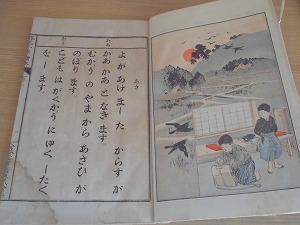 よがあけまーた からすが
かあかあ と なきます
むかうの やまから あさひ が
のぼります
こどもは がくかう に ゆく ーたく
を ー ます。